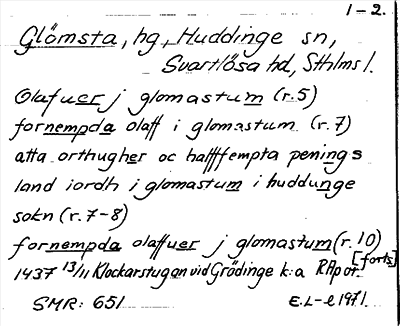 1-2.
Glömsta, hg, Huddinge sn,
Svartlösa hd, Sthlms l.
Olafuer j glomastum (r.5)
fornempda olaff i glomastum (r.7)
atta orthugher oc halffempta penings
land iordh i glomastum i huddunge
sokn (r.7-8)
fornempda olaffuer j glomastum (r.10)
[forts]
1437 13/11 Klockarstugan vid Grödinge k:a RAp or.
SMR: 651 E.L-l 1971.